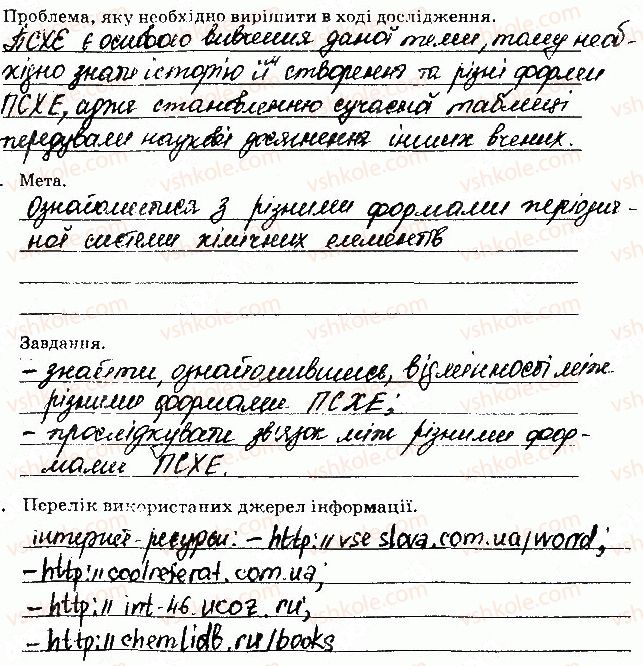 Проблема, яку необхідно вирішити в ході дослідження.
ПСХЕ є основою вивчення даної теми, тому необ-
хідно знати історію її створення та різні форми
ПСХЕ, адже становленню сучасної таблиці
передували наукові досягнення інших вчених.
Мета.
Ознайомитися з різними формами періодич-
ної системи хімічних елементів
Завдання.
- знайти, ознайомившись, відмінності між
різними формами ПСХЕ;
- прослідкувати зв'язок між різними фор-
мами ПСХЕ.
. Перелік використаних джерел інформації.
інтернет-ресурсы: - http://vse slova.com.ua/word;
- http://coolreferat.com.ua;
- http://int-46.ucoz.ru;
- http://chemlidb.ru/books